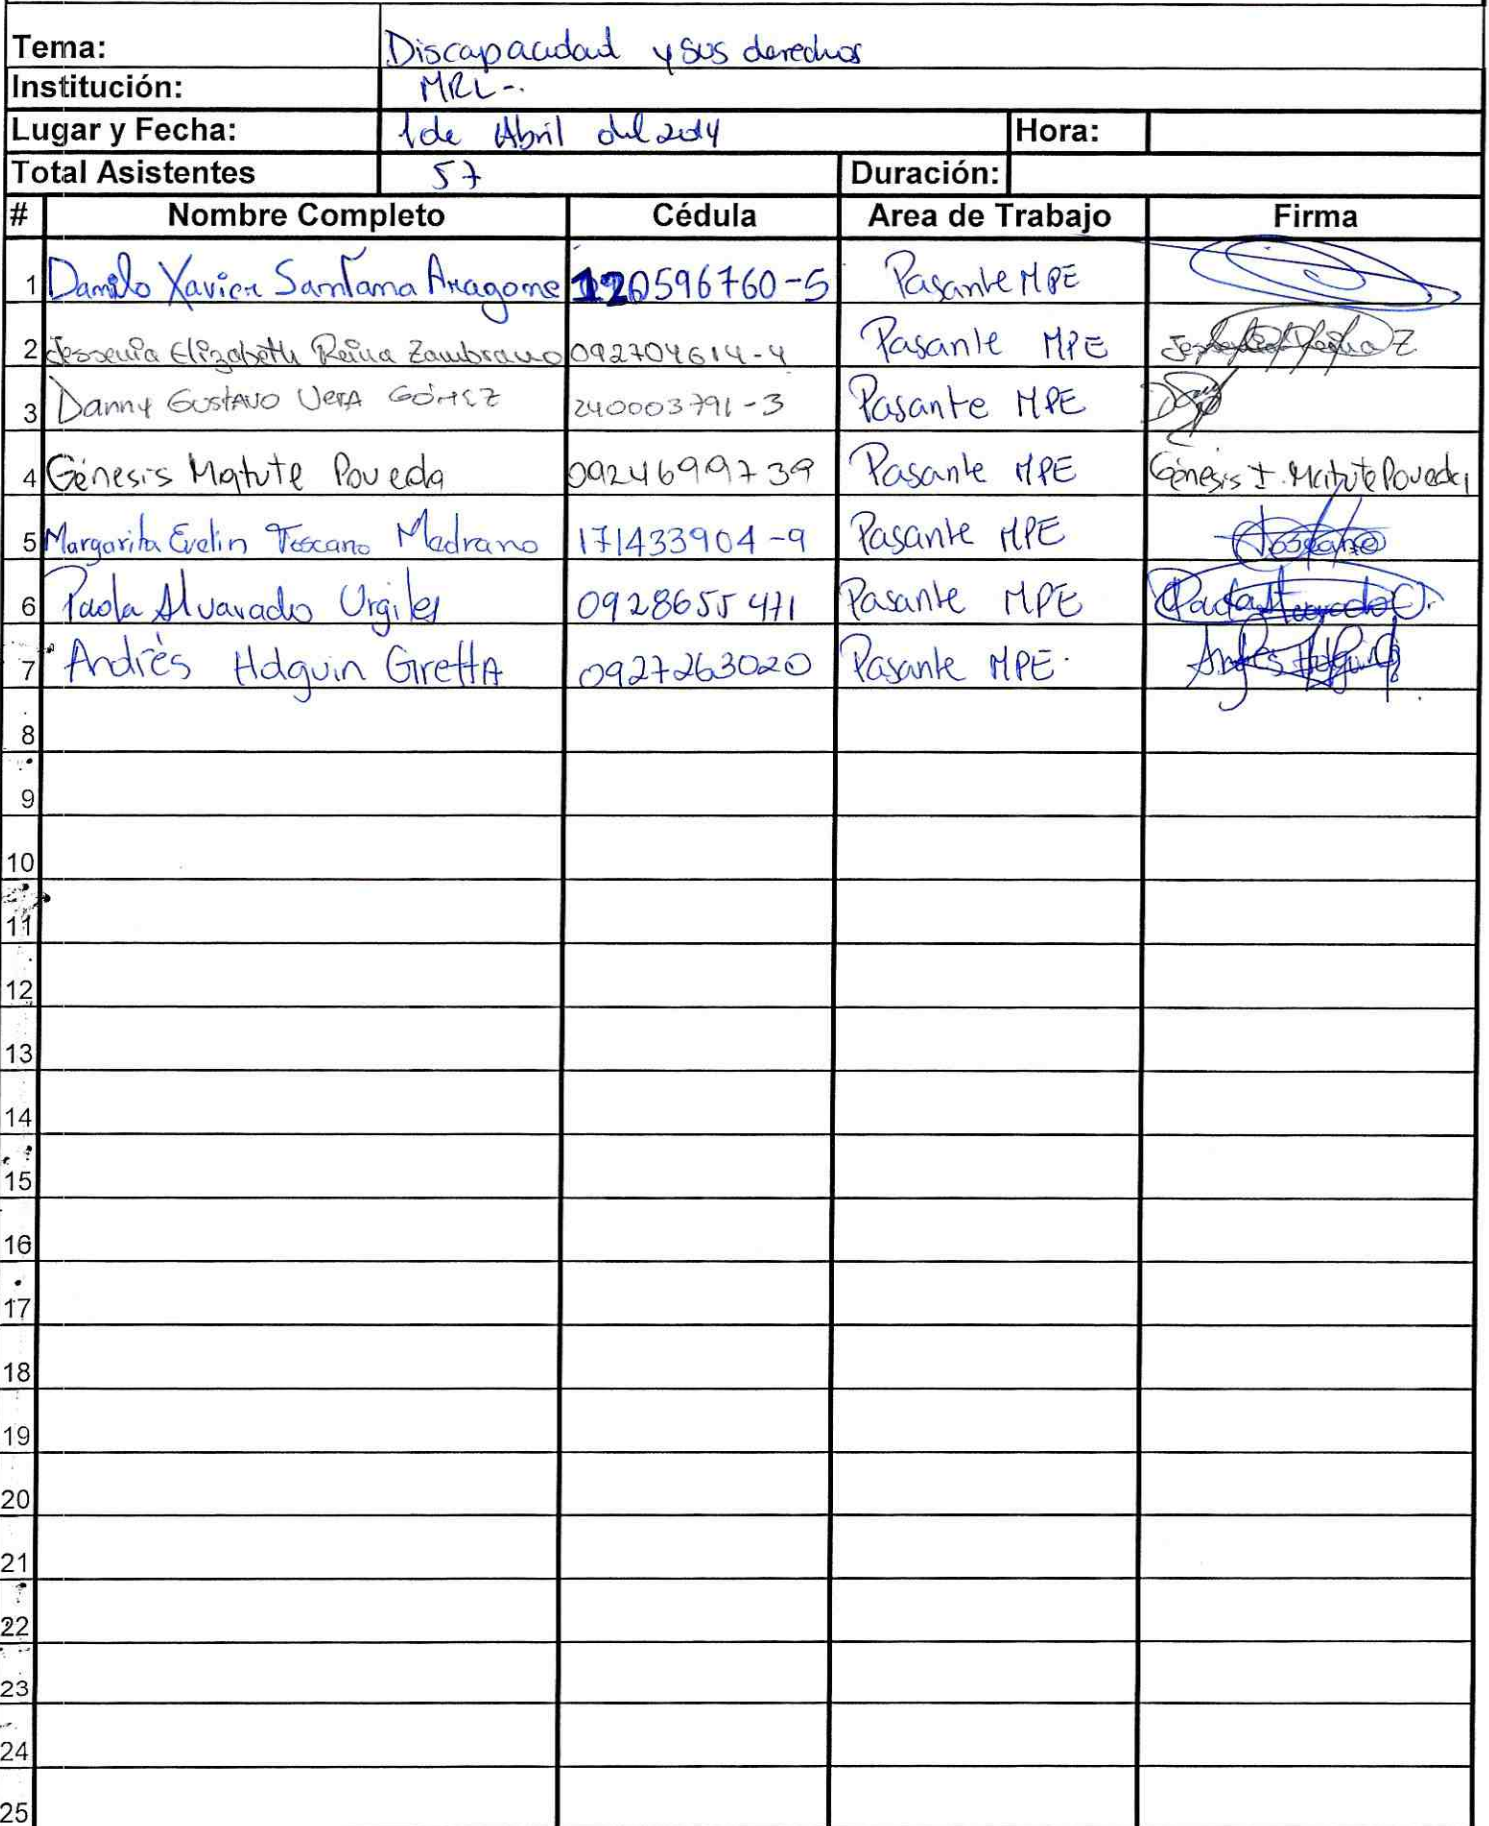 Tema: Discapacidad y sus derechos
Institución: MRL-.
Lugar y Fecha: 1 de Abril del 2014 Hora:
Total Asistentes 57 Duración:
# Nombre Completo Cédula Area de Trabajo Firma
1 Danilo Xavier Santana Aragone 120596760-5 Pasante MPE
2 Jessenia Elizabeth Reina Zambrano 092704614-4 Pasante MPE
3 Danny Gustavo Vera Gómez 240003791-3 Pasante MPE
4 Génesis Matute Poveda 0924699739 Pasante MPE Génesis I. Matute Poveda
5 Margarita Evelin Toscano Medrano 171433904-9 Pasante MPE Toscano
6 Paola Alvarado Urgiles 0928655471 Pasante MPE Paola Alvarado U.
7 Andrès Holguin Giretta 0927263020 Pasante MPE. Andrés Holguin G
8
9
10
11
12
13
14
15
16
17
18
19
20
21
22
23
24
25